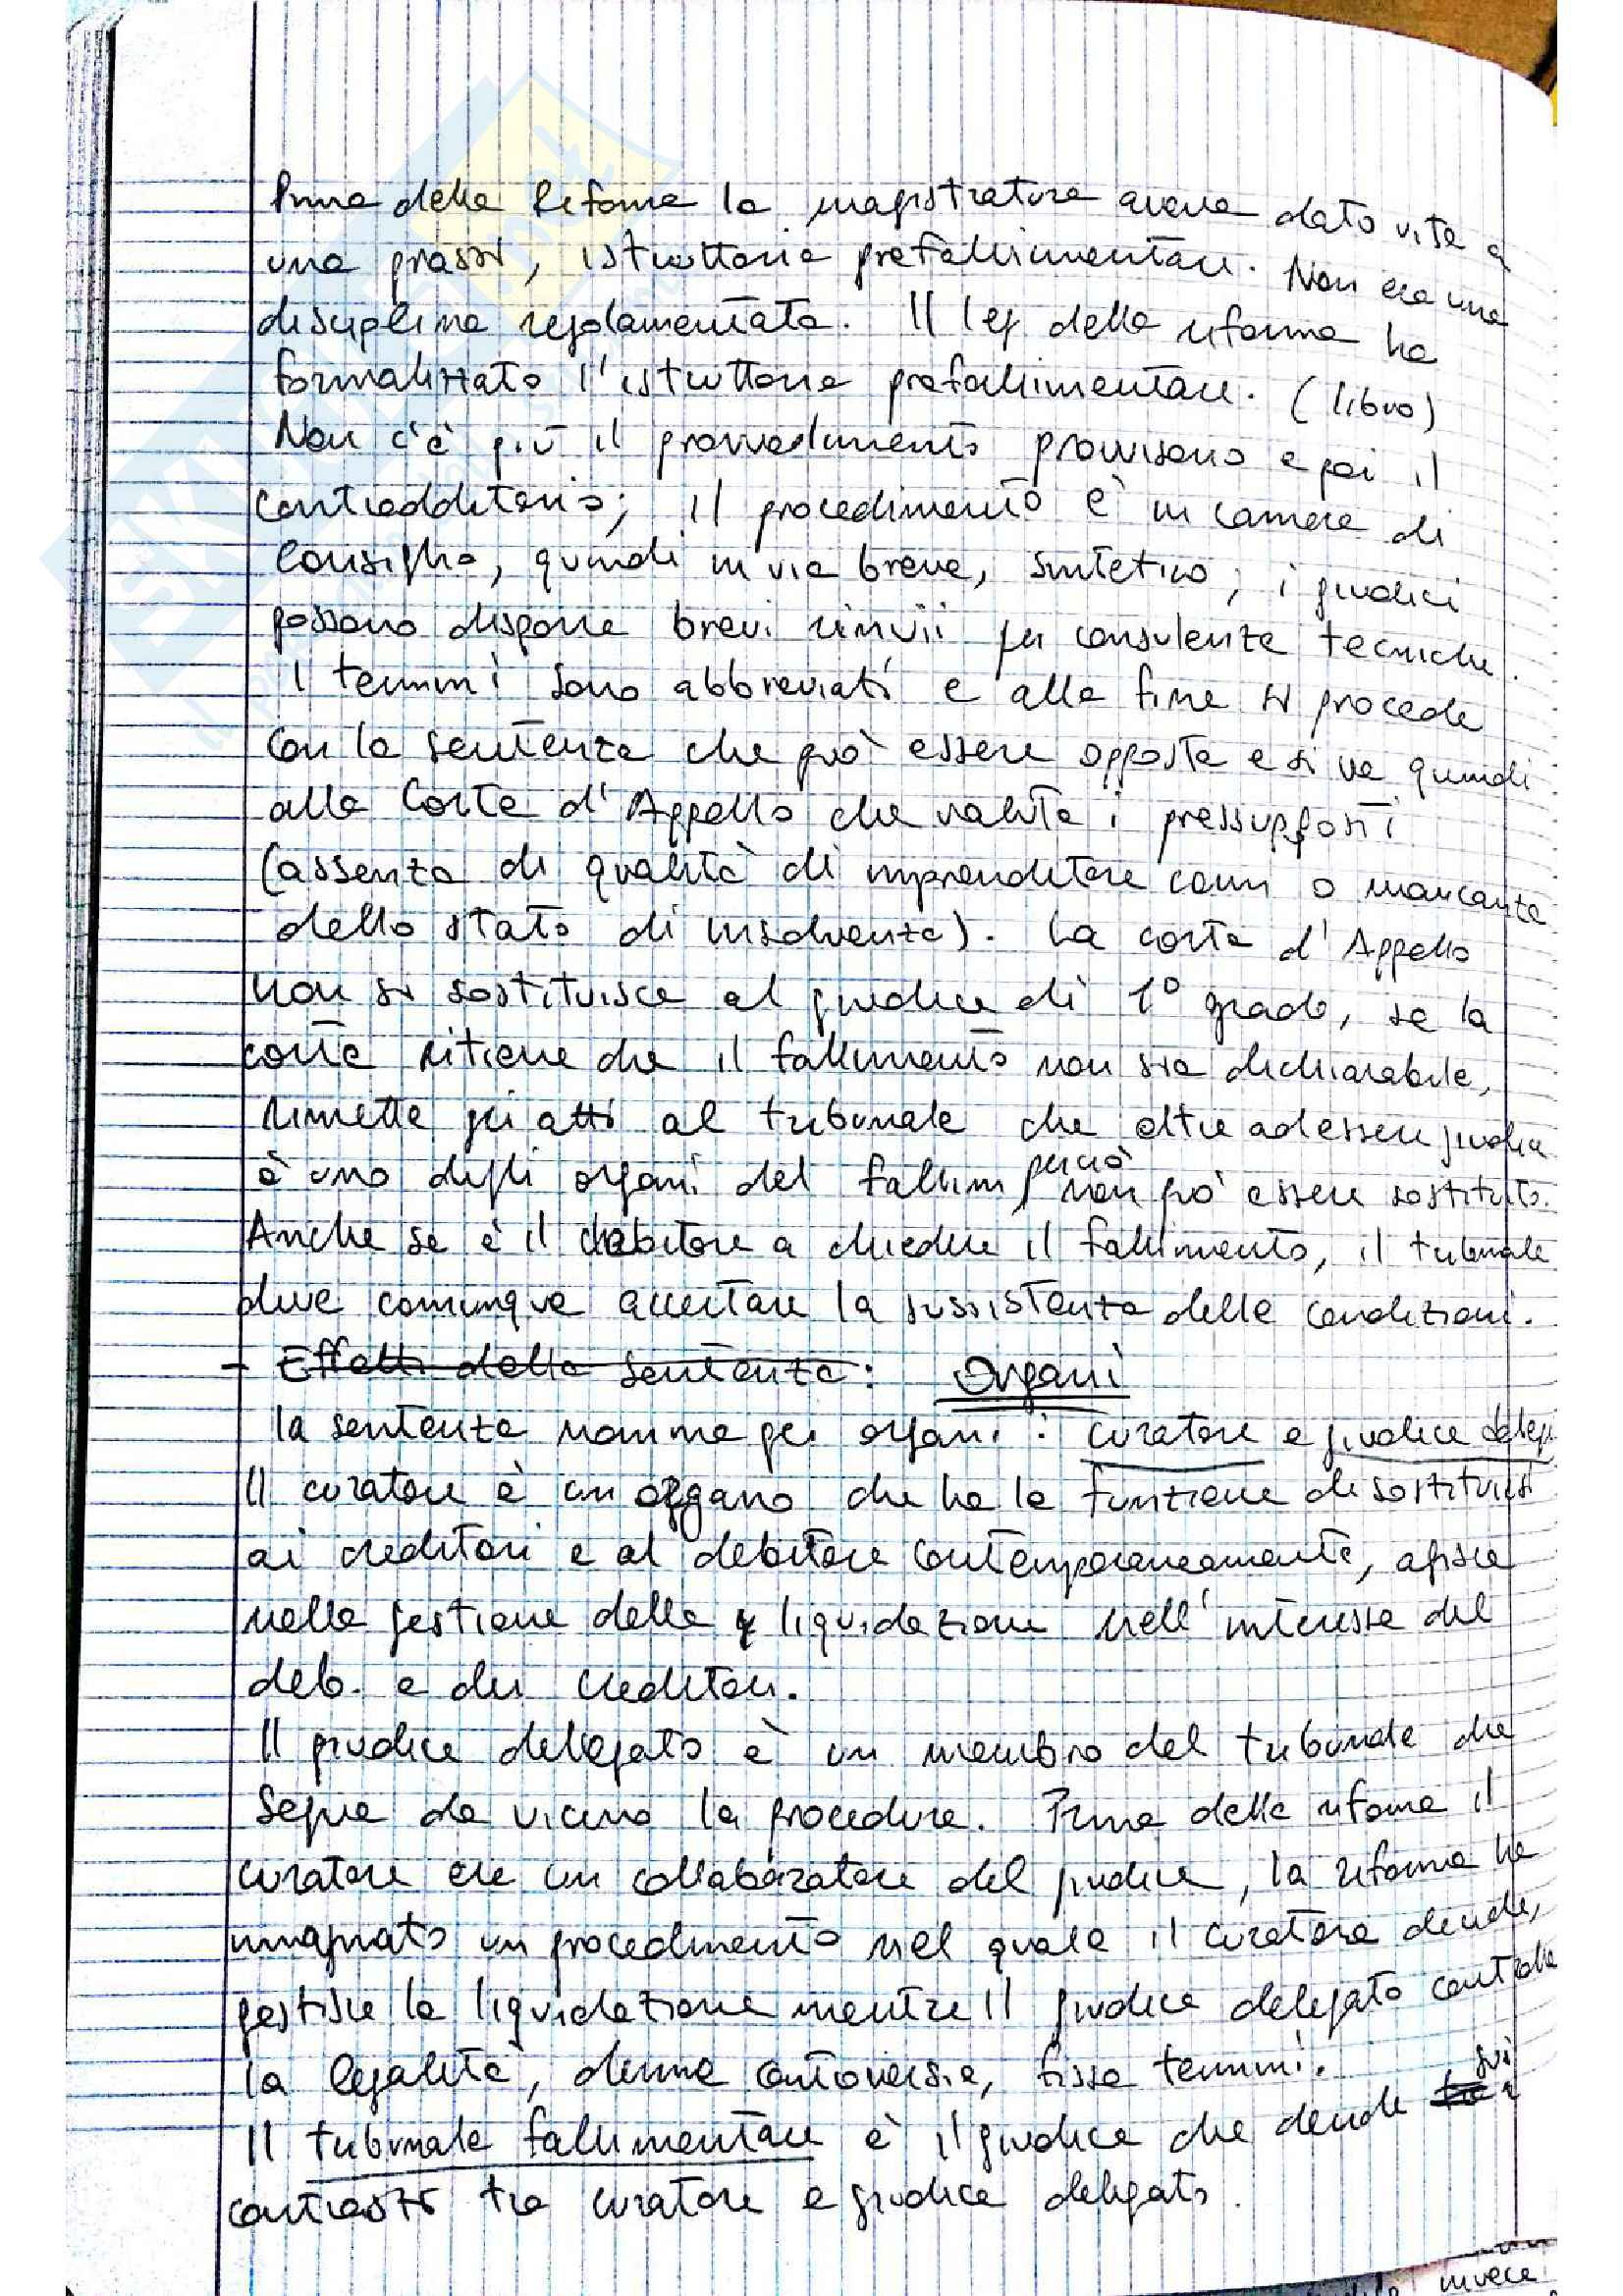 Prima della Riforma la magistratura aveva dato vita a
una prassi, istruttoria prefallimentare. Non era una
disciplina regolamentata. Il leg della riforma ha
formalizzato l'istruttoria prefallimentare. (libro)
Non c'è più il provvedimento provvisorio e poi il
contraddittorio; il procedimento è in camera di
Consiglio, quindi in via breve, sintetico; i giudici
possono disporre brevi rinvii per consulenze tecniche.
I termini sono abbreviati e alla fine si procede
con la sentenza che può essere opposta e si va quindi
alla Corte d'Appello che valuta i presupposti
(assenza di qualità di imprenditore comm o mancante
dello stato di insolvenza). La corte d'Appello
non si sostituisce al giudice di 1° grado, se la
corte ritiene che il fallimento non sia dichiarabile,
rimette gli atti al tribunale che oltre ad essere giudice
è uno degli organi del fallim perciò non può essere sostituito.
Anche se è il debitore a chiedere il fallimento, il tribunale
deve comunque accertare la sussistenza delle condizioni.
- Effetti della sentenza: Organi
la sentenza nomina gli organi: curatore e giudice deleg
Il curatore è un organo che ha la funzione di sostituirsi
ai creditori e al debitore contemporaneamente, agisce
nella gestione della liquidazione nell'interesse del
deb. e dei creditori.
Il giudice delegato è un membro del tribunale che
segue da vicino la procedura. Prima della riforma il
curatore era un collaboratore del giudice, la riforma ha
immaginato un procedimento nel quale il curatore decide,
gestisce la liquidazione mentre il giudice delegato controlla
la legalità, dirime controversie, fissa termini.
Il tribunale fallimentare è il giudice che decide sui
contrasti tra curatore e giudice delegato.
invece